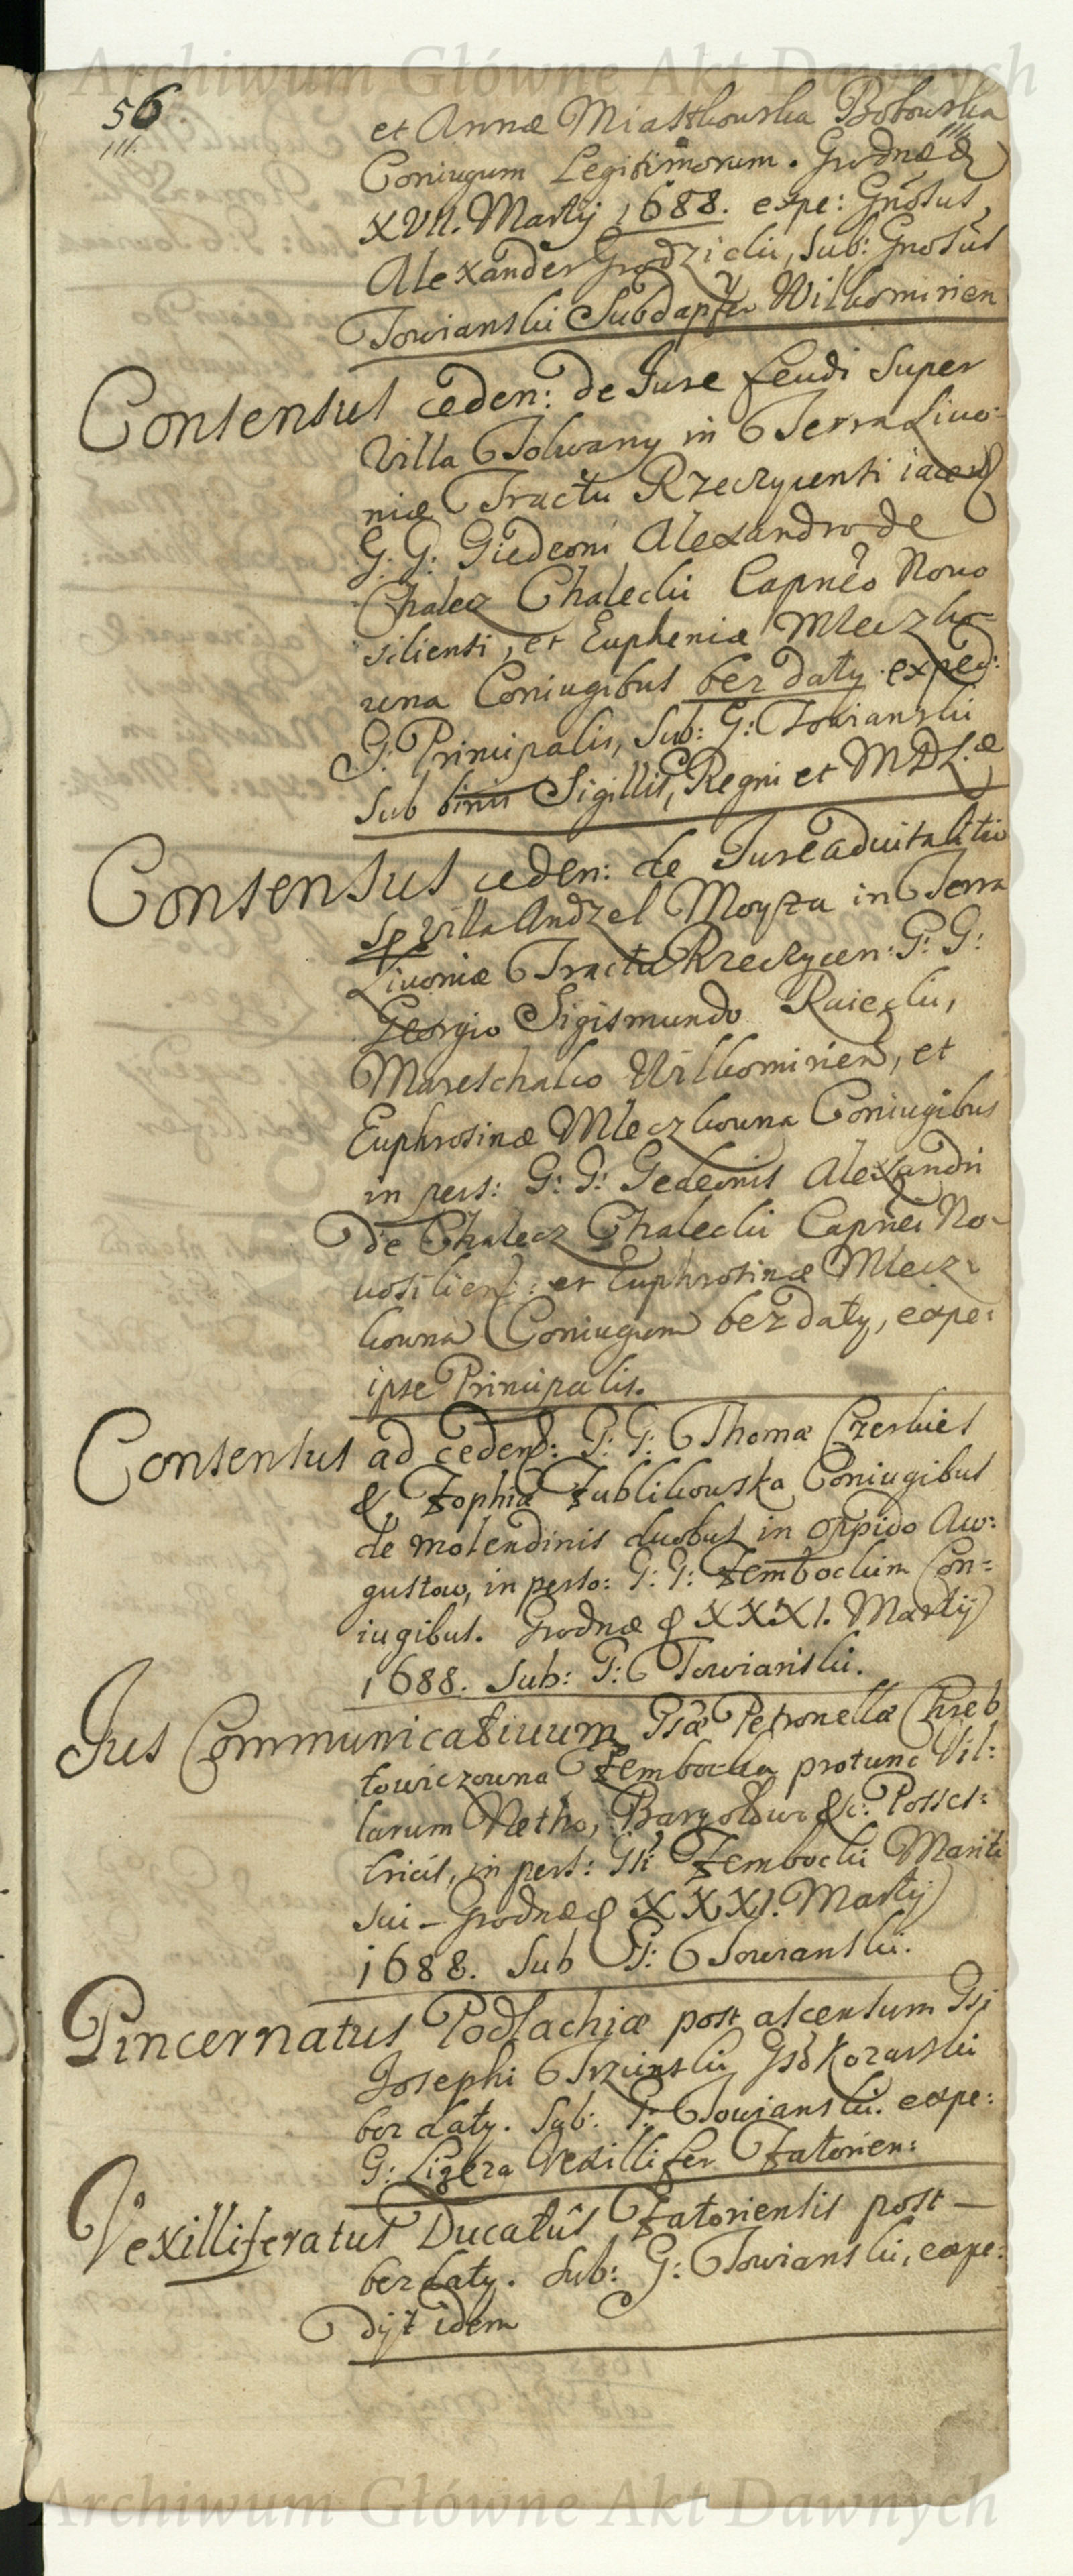 Archiwum Główne Akt Dawnych
56.
et Annæ Miastkowska Bobowska
Coniugum Legitimorum. Grodnæ d
XVII. Martij 1688. expe: Gnosus
Alexander Grodzicki, Sub: Gnosus
Towianski Subdapifer Wilkomirien
Consensus ceden: de Iure feudi super
Villa Tolwany in Terra Liuo-
niæ Tractu Rzeczycensi iacen
G. G: Giedeoni Alexandro de
Chalecz Chalecki Capneo Nouo
siliensi, et Eupheniæ Mleczko-
wna Coniugibus bez daty exped:
G: Principalis, Sub: G: Towianski
Sub binis Sigillis, Regni et MDL.æ
Consensus ceden: de Iure aduitalitio
Sp Villa Andzel Moyza in Terra
Liuoniæ Tractu Rzeczycen: G: G:
Georgio Sigismundo Ruiecki,
Mareschalco Wilkomirien, et
Euphrosinæ Mleczkowna Coniugibus
in pers: G: G: Gedeonis Alexandri
de Chalecz Chalecki Capnei No-
uosilien: et Euphrosinæ Mlecz-
kowna Coniugum bez daty, expe:
ipse Principalis.
Consensus ad ceden: G: G: Thomæ Czerkies
& Zophiæ Zublikowska Coniugibus
de molendinis duobus in oppido Au-
gustow, in perso: G: G: Zembockim Con-
iugibus. Grodnæ d XXXI. Martij
1688. Sub: G: Towianski.
Ius Communicatiuum Gsæ Petronellæ Chreb
towiczowna Zembocka protunc Vil-
larum Netho, Bargołowo &c: Posses-
tricis, in pers: Gsi Zembocki Mariti
sui - Grodnæ d XXXI. Martij
1688. Sub G: Towianski.
Pincernatus Podlachiæ post ascensum Gsi
Josephi Trzinski, Gso Kozarski
bez daty. Sub: G: Towianski. expe:
G: Ligęza Vexillifer Zatorien:
Vexilliferatus Ducatûs Zatoriensis post —
bez daty. Sub: G: Towianski, expe-
dijt idem
Archiwum Główne Akt Dawnych